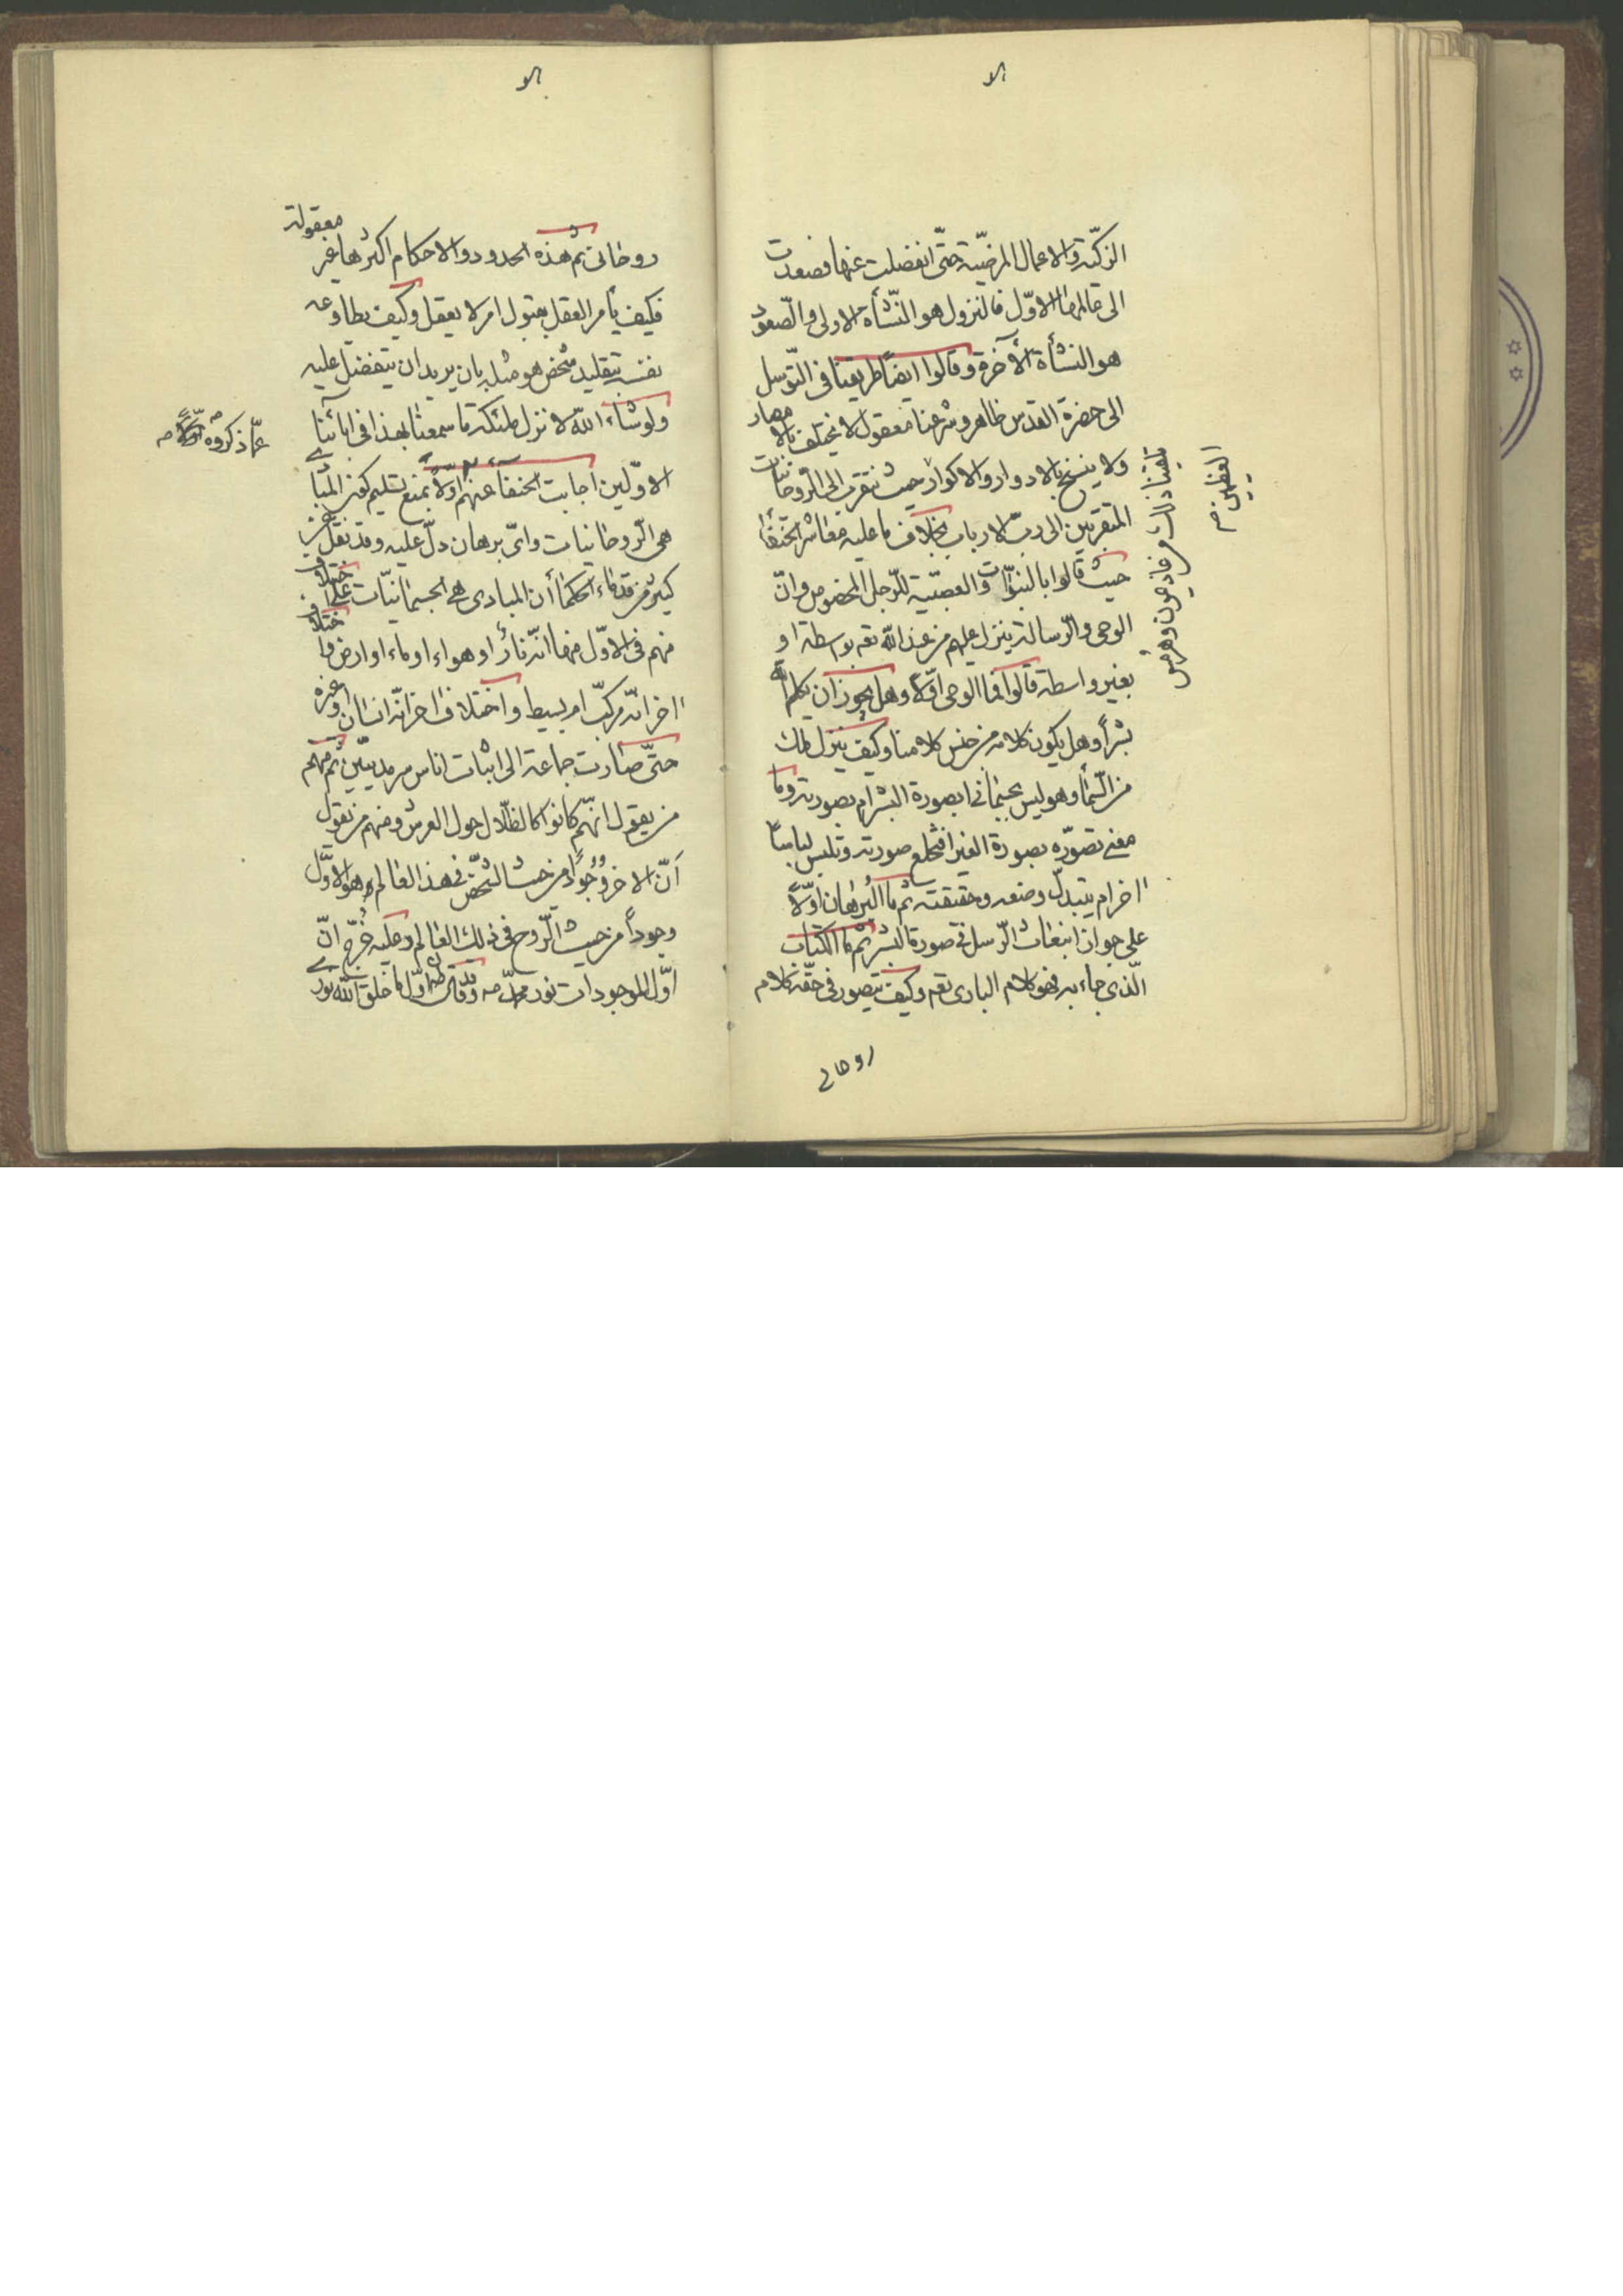 الزكيّة والاعمال المرضيّة حتّى انفصلت عنها فصعدت
الى عالمها الاوّل فالنزول هو النّشأة الاولى والصّعود
هو النشأة الآخرة وقالوا ايضاً طريقنا فى التّوسل
الى حضرة القدس ظاهر وشرعنا معقول لا يختلف بالامصار
ولا ينسخ بالادوار والاكوار حيث نتقرب الى الرّوحانيات
المتقربين الى ربّ الارباب بخلاف ما عليه معاشر الحنفا
حيث قالوا بالنبوّات والعصبيّة للرّجل المخصوص وانّ
الوحى والرّسالة ينزل عليهم من عند الله تعه بواسطة او
بغير واسطة قالوا فما الوحى اوّلا وهل يجوز ان يكلم الله
بشراً وهل يكون كلامه من جنس كلامنا وكيف ينزل ملك
من السّماء وهو ليس بجسمانى ابصورة البشر ام بصورته وما
معنى تصوّره بصورة الغير افيخلع صورته ويلبس لباساً
اخر ام يتبدل وضعه وحقيقته ثم ما البرهان اوّلاً
على جواز انبعاث الرّسل فى صورة البشر ثم ما الكتاب
الّذى جاء به فهو كلام البارى تعه وكيف يتصور فى حقّه كلام
روحانى
تلقينا ذلك من عاذيمون وهرمس
العظيمين
روحانى ثم هذه الحدود والاحكام اكثرها غير معقولة
فكيف يأمر العقل بقبول امر لا يعقل وكيف يطاوعه
نفسه بتقليد شخص هو مثله بان يريد ان يتفضل عليه
ولو شاء الله لانزل ملئكة ما سمعنا بهذا فى ابائنا
الاوّلين اجابت الحنفاء عنهم اوّلاً بمنع تسليم كون المبادى
هى الرّوحانيات واىّ برهان دلّ عليه وقد نقل عن
كثير من قدماء الحكماء أن المبادى هى الجسمانيّات على اختلاف
منهم فى الاوّل منها انّه نار او هواء او ماء او ارض واختلاف
اخر انّه مركبّ ام بسيط واختلاف اخر انّه انسان او غيره
حتّى صارت جماعة الى اثبات اناس سرمديّين ثم منهم
من يقول انّهم كانوا كالظّلال حول العرش ومنهم من يقول
أنّ الاخر وجُوداً من حيث الشّخص فى هذا العالم هو الاوّل
وجوداً من حيث الرّوح فى ذلك العالم وعليه خُرّج انّ
اوّل الموجودات نور محمّد صه وقد قال اوّل ما خلق الله نورى
عمّا ذكروه